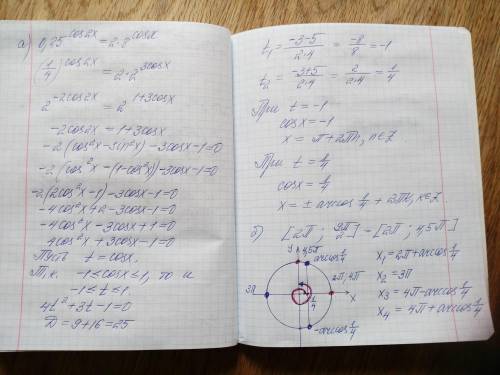 а) 0,25^cos2x = 2·8^cosx
(1/4)^cos2x = 2·2^3cosx
2^-2cos2x = 2^1+3cosx
-2cos2x = 1+3cosx
-2(cos²x-sin²x)-3cosx-1=0
-2(cos²x-(1-cos²x))-3cosx-1=0
-2(2cos²x-1)-3cosx-1=0
-4cos²x+2-3cosx-1=0
-4cos²x-3cosx+1=0
4cos²x+3cosx-1=0
Пусть t=cosx,
Т.к. -1≤cosx≤1, то и
-1≤t≤1.
4t²+3t-1=0
D=9+16=25
t₁ = -3-5/2·4 = -8/8 = -1
t₂ = -3+5/2·4 = 2/2·4 = 1/4
При t=-1
cosx=-1
x = π+2πn, n∈Z
При t=1/4
cosx=1/4
x = ± arccos 1/4 + 2πk, k∈Z
б) [2π; 9π/2] = [2π; 4,5π]
y 4,5π
arccos 1/4
3π
2π, 4π
1/4
x
-arccos 1/4
x₁=2π+arccos 1/4
x₂=3π
x₃=4π-arccos 1/4
x₄=4π+arccos 1/4